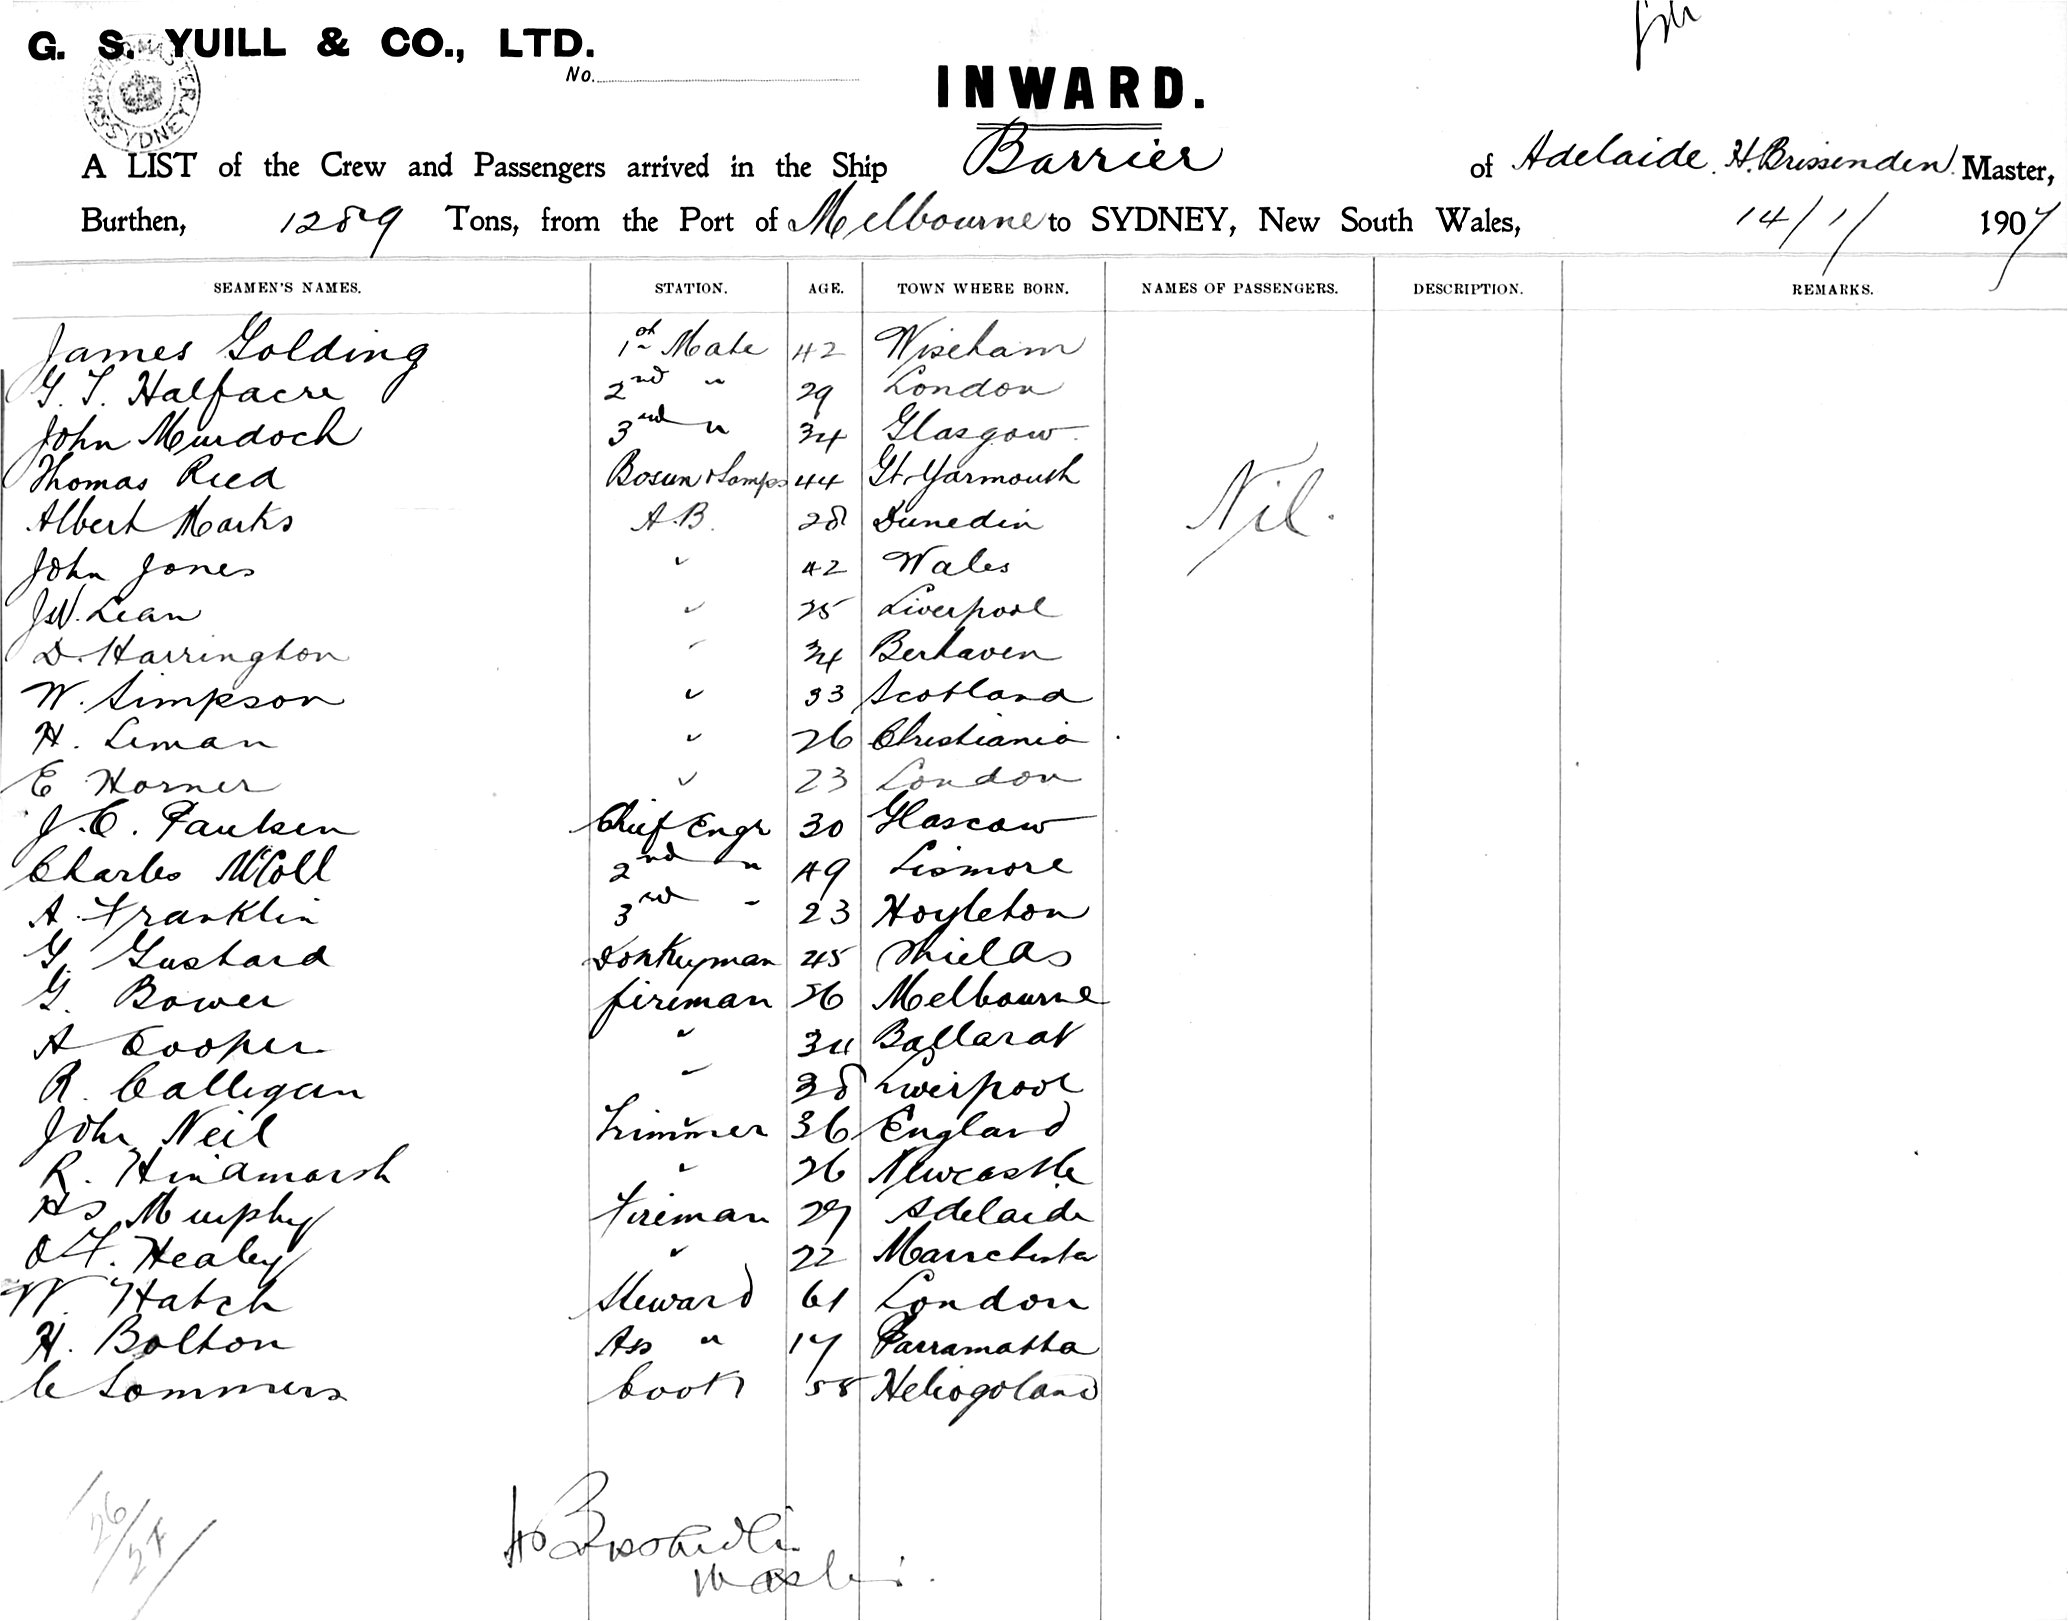 G. S. YUILL & CO., LTD.
No.
INWARD.
A LIST of the Crew and Passengers arrived in the Ship Barrier of Adelaide. H. Brissenden. Master,
Burthen, 1289 Tons, from the Port of Melbourne to SYDNEY, New South Wales, 14/1/ 1907
SEAMEN'S NAMES. STATION. AGE. TOWN WHERE BORN. NAMES OF PASSENGERS. DESCRIPTION. REMARKS.
James Golding 1st Mate 42 Wiseham
G. T. Halfacre 2nd " 29 London
John Murdoch 3rd " 34 Glasgow
Thomas Reed Bosun & Lamps 44 Gt. Yarmouth
Nil.
Albert Marks A.B. 28 Dunedin
John Jones " 42 Wales
J.W. Lean " 25 Liverpool
D. Harrington " 34 Berhaven
W. Simpson " 33 Scotland
H. Leman " 26 Christiania
E Horner " 23 London
J. C. Paulsen Chief Engr 30 Glascow
Charles McColl 2nd " 49 Lismore
A. Franklin 3rd " 23 Hoyleton
G. Gustard Donkeyman 45 Shields
G. Bower fireman 26 Melbourne
A Cooper " 34 Ballarat
R. Calligan " 38 Liverpool
John Neil Trimmer 36 England
R. Hindmarsh " 26 Newcastle
Hs Murphy Fireman 29 Adelaide
O F. Healey " 22 Manchester
W. Hatch Steward 61 London
H. Bolton Ass " 17 Parramatta
C Sommers Cook 58 Heliogoland
26/27
Master.